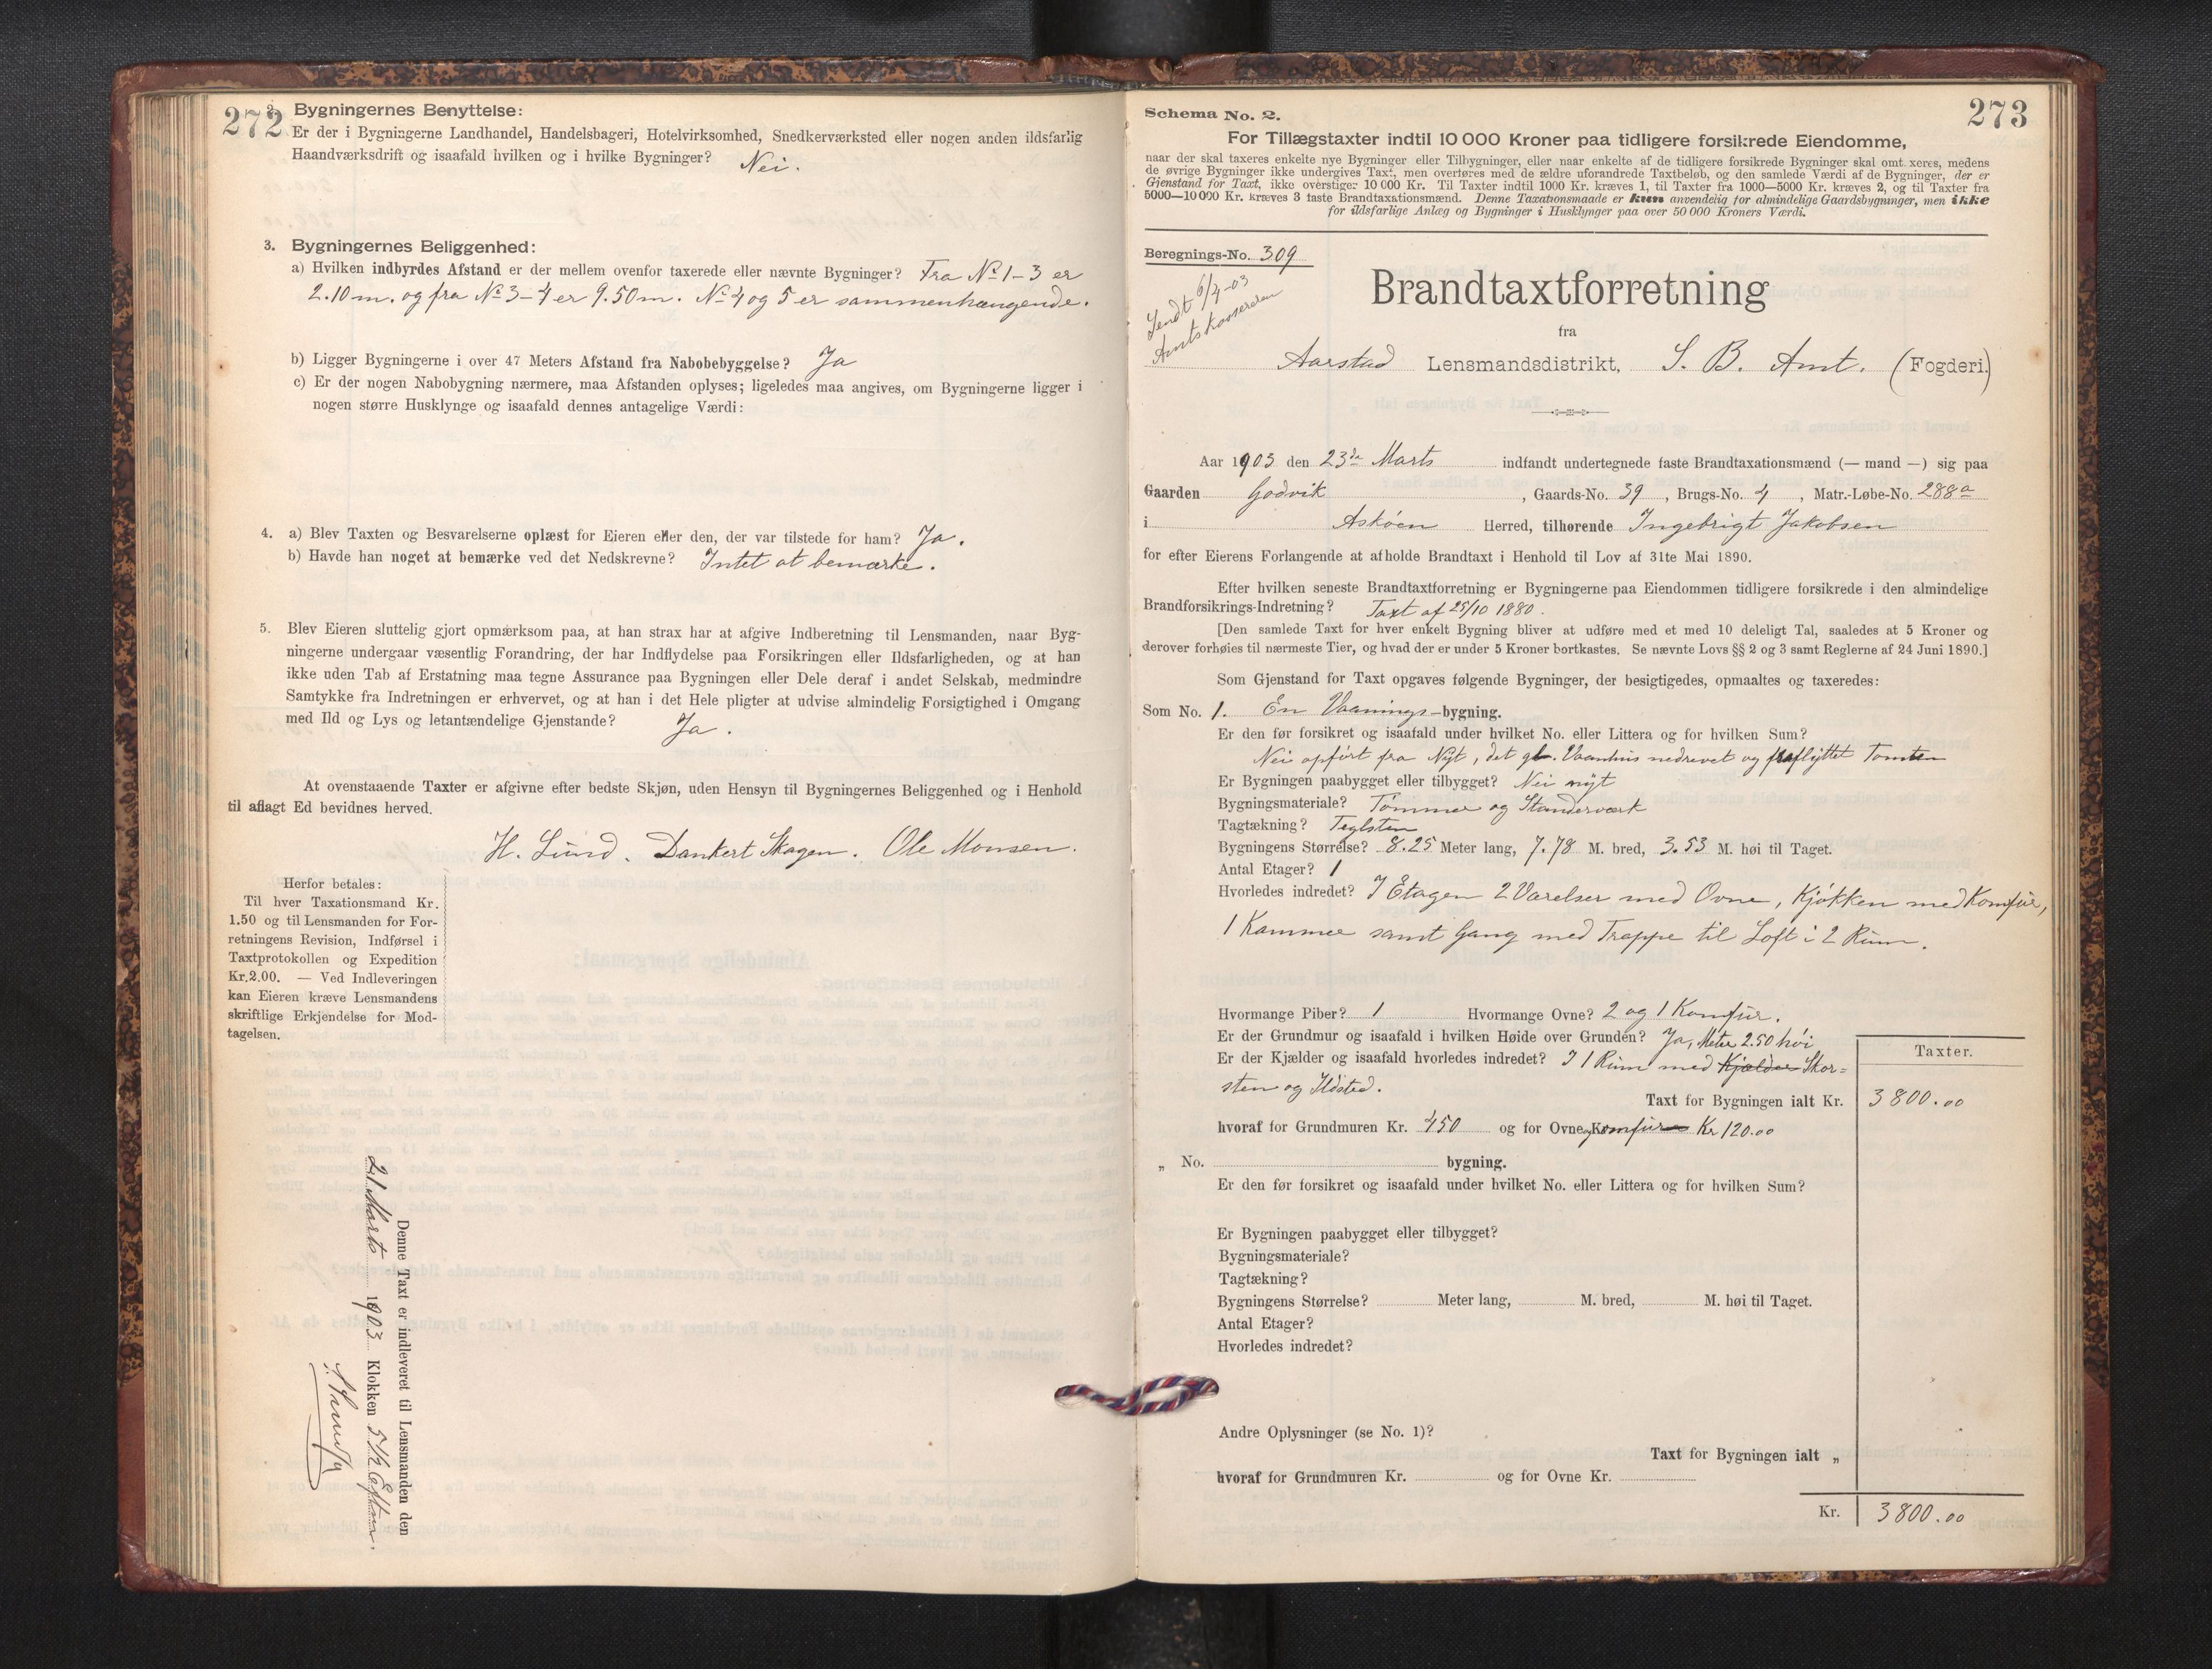 272
2. Bygningernes Benyttelse:
Er der i Bygningerne Landhandel, Handelsbageri, Hotelvirksomhed, Snedkerværksted eller nogen anden ildsfarlig
Haandværksdrift og isaafald hvilken og i hvilke Bygninger? Nei.
3. Bygningernes Beliggenhed:
a) Hvilken indbyrdes Afstand er der mellem ovenfor taxerede eller nævnte Bygninger? Fra No 1-3 er
2.10 m. og fra No 3-4 er 9.50 m. No 4 og 5 er sammenhængende.
b) Ligger Bygningerne i over 47 Meters Afstand fra Nabobebyggelse? Ja
c) Er der nogen Nabobygning nærmere, maa Afstanden oplyses; ligeledes maa angives, om Bygningerne ligger i
nogen større Husklynge og isaafald dennes antagelige Værdi:
4. a) Blev Taxten og Besvarelserne oplæst for Eieren eller den, der var tilstede for ham? Ja.
b) Havde han noget at bemærke ved det Nedskrevne? Intet at bemærke.
5. Blev Eieren sluttelig gjort opmærksom paa, at han strax har at afgive Indberetning til Lensmanden, naar Byg-
ningerne undergaar væsentlig Forandring, der har Indflydelse paa Forsikringen eller Ildsfarligheden, og at han
ikke uden Tab af Erstatning maa tegne Assurance paa Bygningen eller Dele deraf i andet Selskab, medmindre
Samtykke fra Indretningen er erhvervet, og at han i det Hele pligter at udvise almindelig Forsigtighed i Omgang
med Ild og Lys og letantændelige Gjenstande? Ja.
At ovenstaaende Taxter er afgivne efter bedste Skjøn, uden Hensyn til Bygningernes Beliggenhed og i Henhold
til aflagt Ed bevidnes herved.
H. Lund. Dankert Skagen. Ole Monsen.
Herfor betales:
Til hver Taxationsmand Kr.
1.50 og til Lensmanden for For-
retningens Revision, Indførsel i
Taxtprotokollen og Expedition
Kr. 2.00. — Ved Indleveringen
kan Eieren kræve Lensmandens
skriftlige Erkjendelse for Mod-
tagelsen.
Denne Taxt er indleveret til Lensmanden den
21 Marts 1903 Klokken 5 1/2 Efterm.
273
Schema No. 2.
For Tillægstaxter indtil 10 000 Kroner paa tidligere forsikrede Eiendomme,
naar der skal taxeres enkelte nye Bygninger eller Tilbygninger, eller naar enkelte af de tidligere forsikrede Bygninger skal omtaxeres, medens
de øvrige Bygninger ikke undergives Taxt, men overføres med de ældre uforandrede Taxtbeløb, og den samlede Værdi af de Bygninger, der er
Gjenstand for Taxt, ikke overstiger 10 000 Kr. Til Taxter indtil 1000 Kr. kræves 1, til Taxter fra 1000—5000 Kr. kræves 2, og til Taxter fra
5000—10 000 Kr. kræves 3 faste Brandtaxationsmænd. Denne Taxationsmaade er kun anvendelig for almindelige Gaardsbygninger, men ikke
for ildsfarlige Anlæg og Bygninger i Husklynger paa over 50 000 Kroners Værdi.
Beregnings-No. 309
Sendt 6/4-03
Amtskassereren
Brandtaxtforretning
fra
Aarstad Lensmandsdistrikt, S. B. Amt. (Fogderi.)
Aar 1903 den 23de Marts indfandt undertegnede faste Brandtaxationsmænd (— mand —) sig paa
Gaarden Godvik, Gaards-No. 39, Brugs-No. 4, Matr.-Løbe-No. 288a
i Askøen Herred, tilhørende Ingebrigt Jakobsen
for efter Eierens Forlangende at afholde Brandtaxt i Henhold til Lov af 31te Mai 1890.
Efter hvilken seneste Brandtaxtforretning er Bygningerne paa Eiendommen tidligere forsikrede i den almindelige
Brandforsikrings-Indretning? Taxt af 25/10 1880.
[Den samlede Taxt for hver enkelt Bygning bliver at udføre med et med 10 deleligt Tal, saaledes at 5 Kroner og
derover forhøies til nærmeste Tier, og hvad der er under 5 Kroner bortkastes. Se nævnte Lovs §§ 2 og 3 samt Reglerne af 24 Juni 1890.]
Som Gjenstand for Taxt opgaves følgende Bygninger, der besigtigedes, opmaaltes og taxeredes:
Som No. 1. En Vaanings-bygning.
Er den før forsikret og isaafald under hvilket No. eller Littera og for hvilken Sum?
Nei opført fra Nyt, det gl. Vaanhus nedrevet og fraflyttet Tomten
Er Bygningen paabygget eller tilbygget? Nei nyt
Bygningsmateriale? Tømmer og Standerværk
Tagtækning? Teglsten
Bygningens Størrelse? 8.25 Meter lang, 7.78 M. bred, 3.53 M. høi til Taget.
Antal Etager? 1
Hvorledes indredet? I Etagen 2 Værelser med Ovne, Kjøkken med Komfur,
1 Kammer samt Gang med Trappe til Loft i 2 Rum.
Hvormange Piber? 1 Hvormange Ovne? 2 og 1 Komfur.
Er der Grundmur og isaafald i hvilken Høide over Grunden? Ja, Meter 2.50 høi
Er der Kjælder og isaafald hvorledes indredet? I 1 Rum med Kjælder Skor=
sten og Ildsted.
Taxter.
Taxt for Bygningen ialt Kr. 3800.00
hvoraf for Grundmuren Kr. 450 og for Ovne og Komfur Kr 120.00
„ No. bygning.
Er den før forsikret og isaafald under hvilket No. eller Littera og for hvilken Sum?
Er Bygningen paabygget eller tilbygget?
Bygningsmateriale?
Tagtækning?
Bygningens Størrelse? Meter lang, M. bred, M. høi til Taget.
Antal Etager?
Hvorledes indredet?
Andre Oplysninger (se No. 1)?
Taxt for Bygningen ialt „
hvoraf for Grundmuren Kr. og for Ovne Kr.
Kr. 3800.00